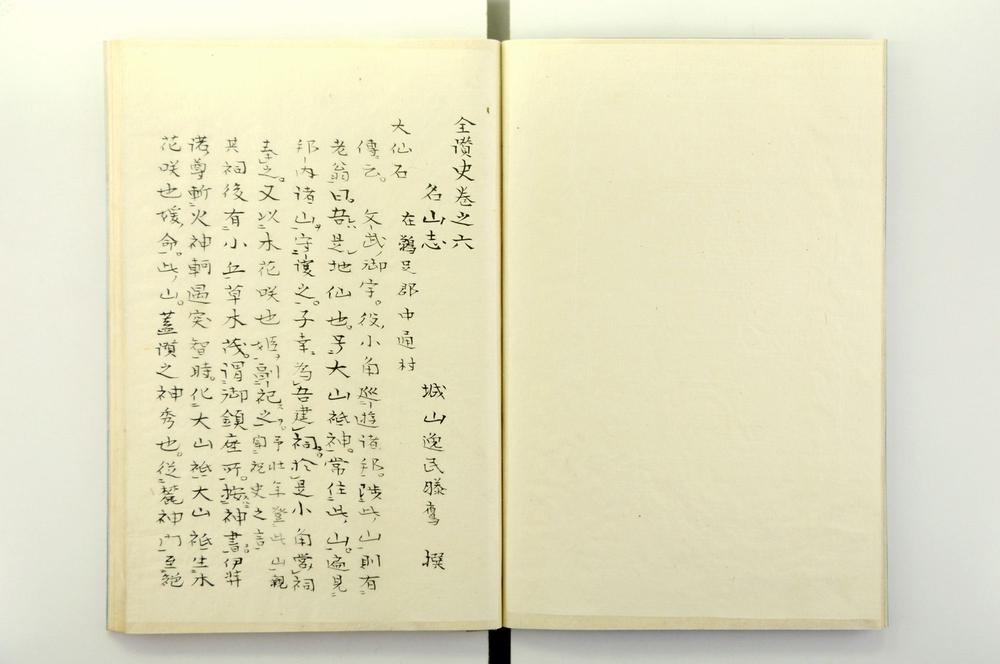 全讃史巻之六
名山志　城山逸民藤　撰
大仙石　在鵜足郡中通村
傳云。文武御宇。役小角巡遊諸邦。陟此山則有
老翁曰。吾是地仙也。号大山祗神。常住此山。遍見
邦内諸山守護之。子幸為吾建祠。於是小角営祠
去之。又以木花咲也姫副祀之。予壮年登此山親聞祝史之言
其祠後有小丘草木茂。謂御鎮座所。按神書。伊弉
諾尊斬火神軻遇突智時。化大山祗。大山祗生木
花咲也媛命。此山。蓋讃之神秀也。従麓神門至絶